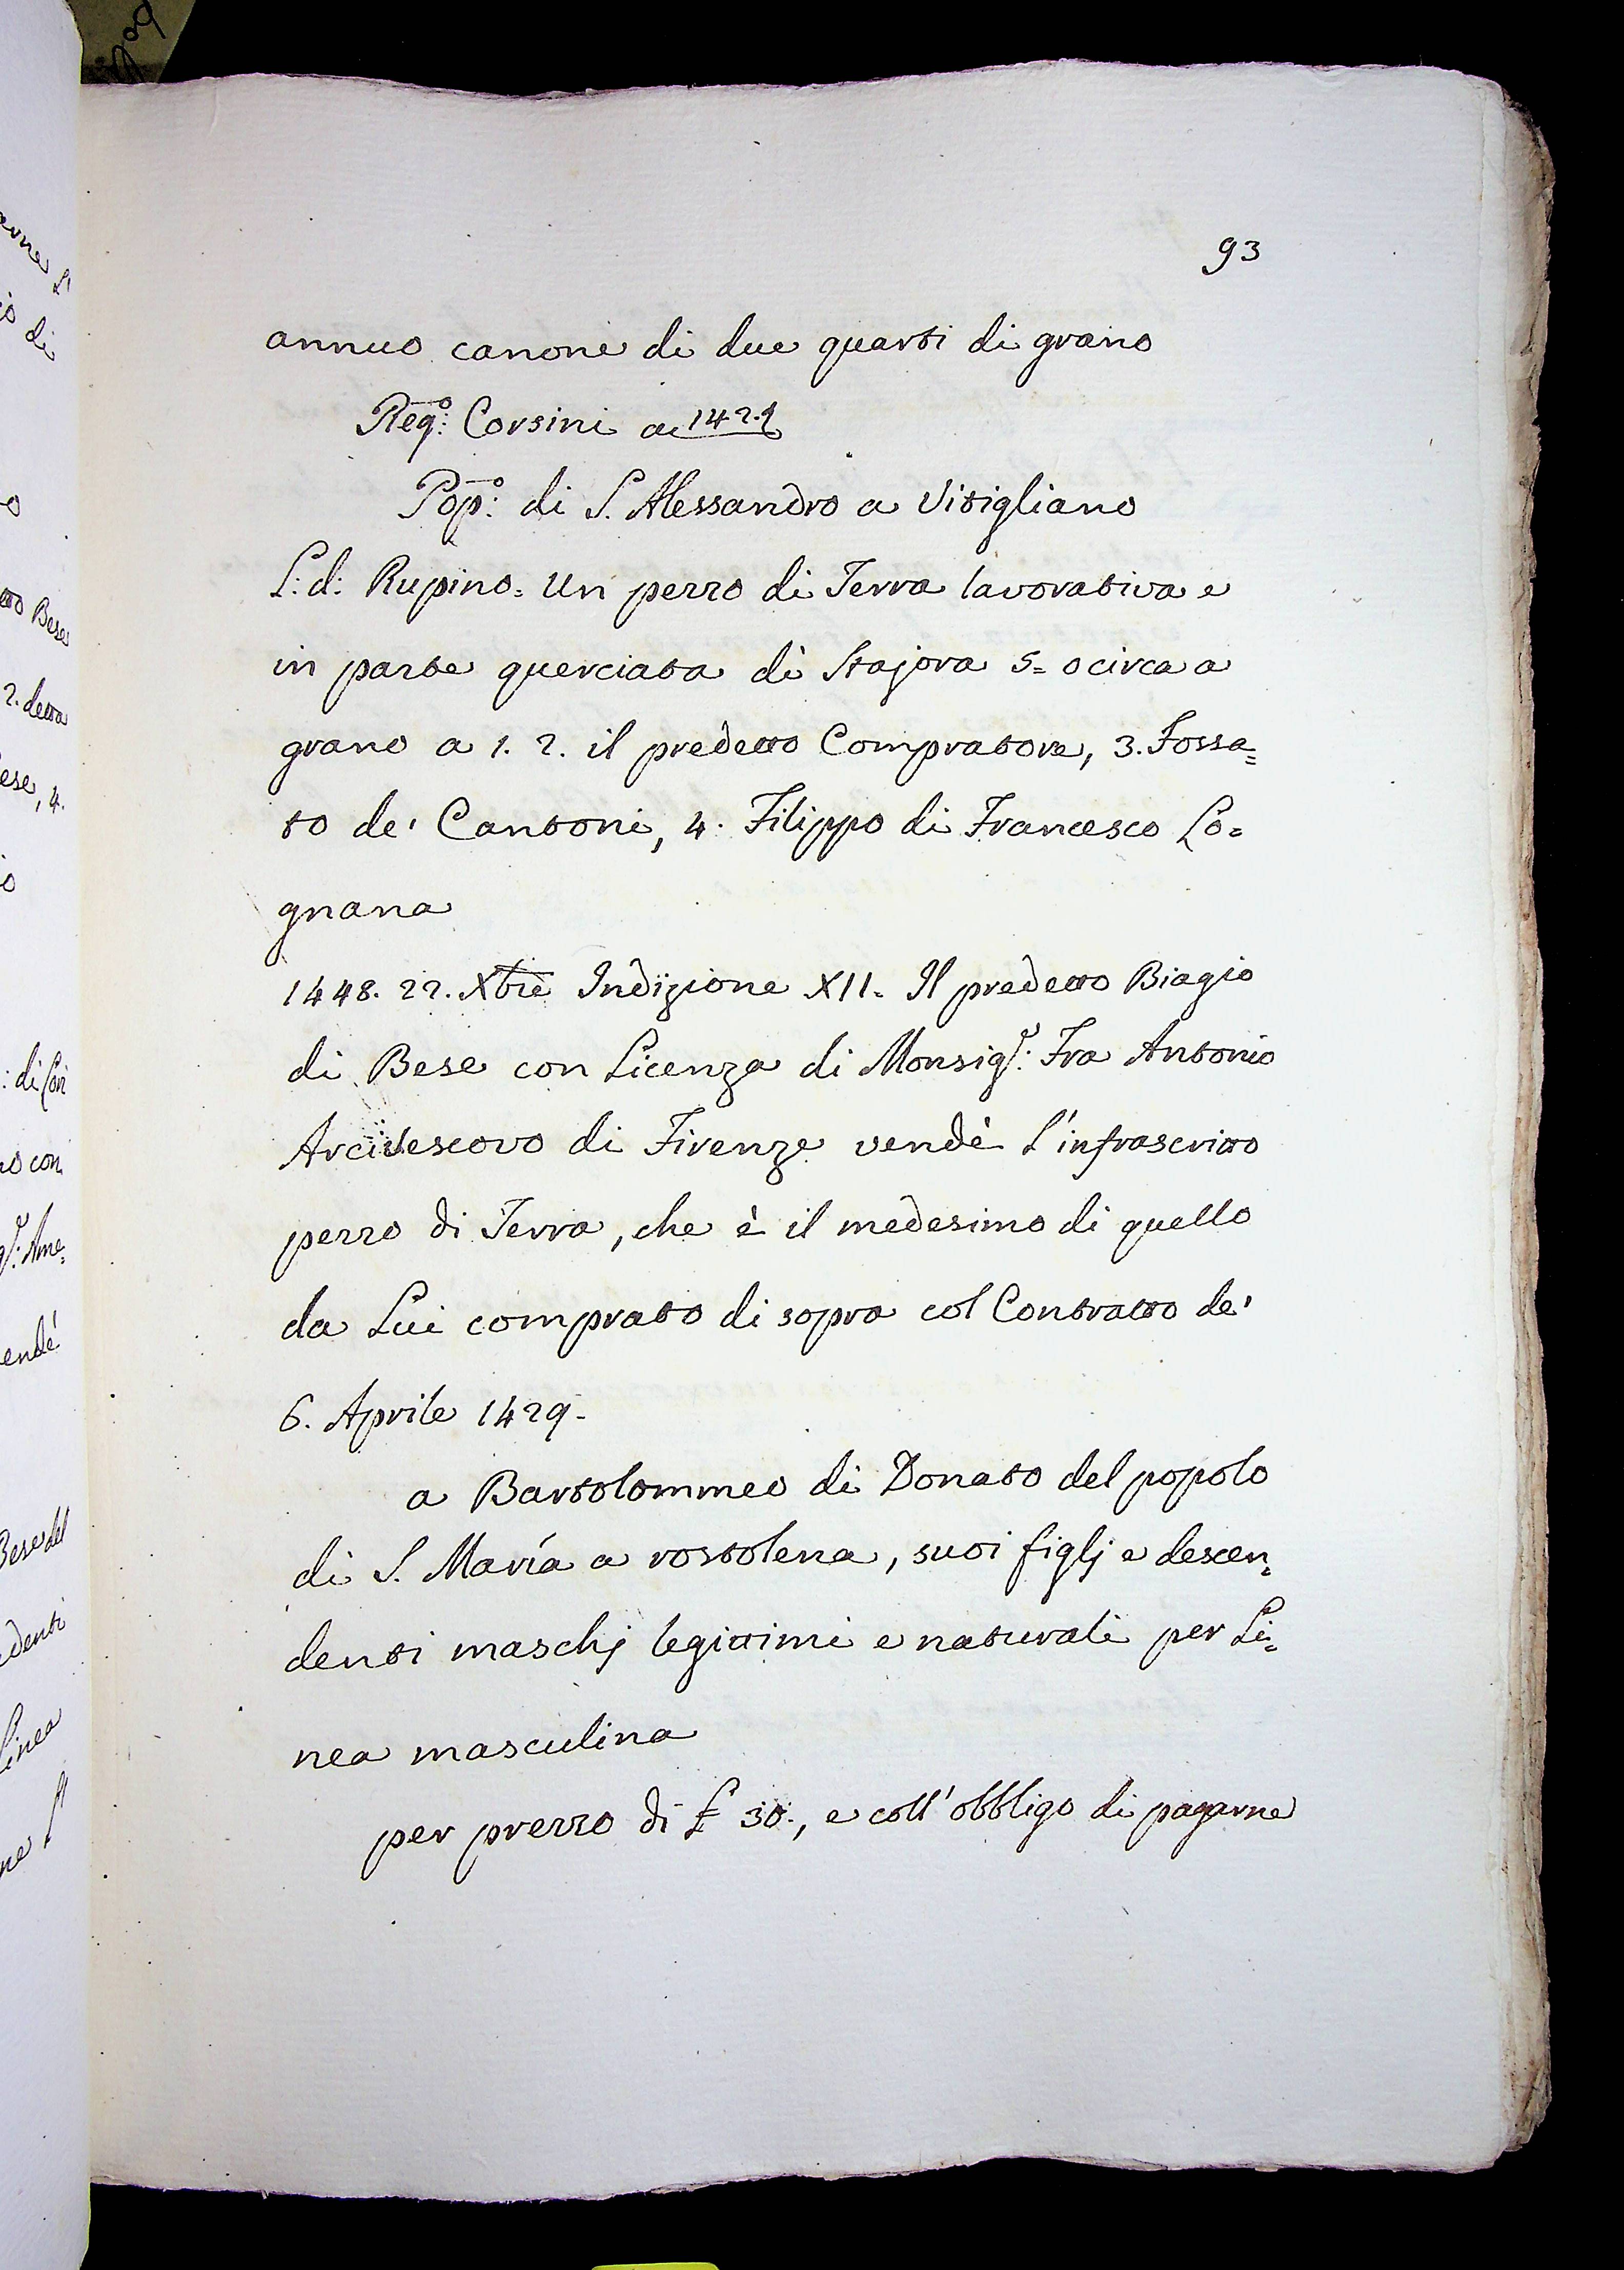 93
annuo canone di due quarti di grano
Reg.º: Corsini a 1429
Pop.º: di S. Alessandro a Vitigliano
L: d: Rupino = Un pezzo di Terra lavorativa e
in parte querciata di Stajora 5 = o circa a
grano a 1. 2. il predetto Compratore, 3. Fossa=
to de' Cantoni, 4. Filippo di Francesco Lo=
gnana
1448. 22. Xbre Indizione XII. Il predetto Biagio
di Bese con Licenza di Monsig.r: Fra Antonio
Arcivescovo di Firenze vendè l'infrascritto
pezzo di Terra, che è il medesimo di quello
da Lui comprato di sopra col Contratto de'
6. Aprile 1429.
a Bartolommeo di Donato del popolo
di S. Maria a rostolena, suoi figlj e descen=
denti maschj legittimi e naturali per Li=
nea masculina
per prezzo di £ 30., e coll'obbligo di pagarne